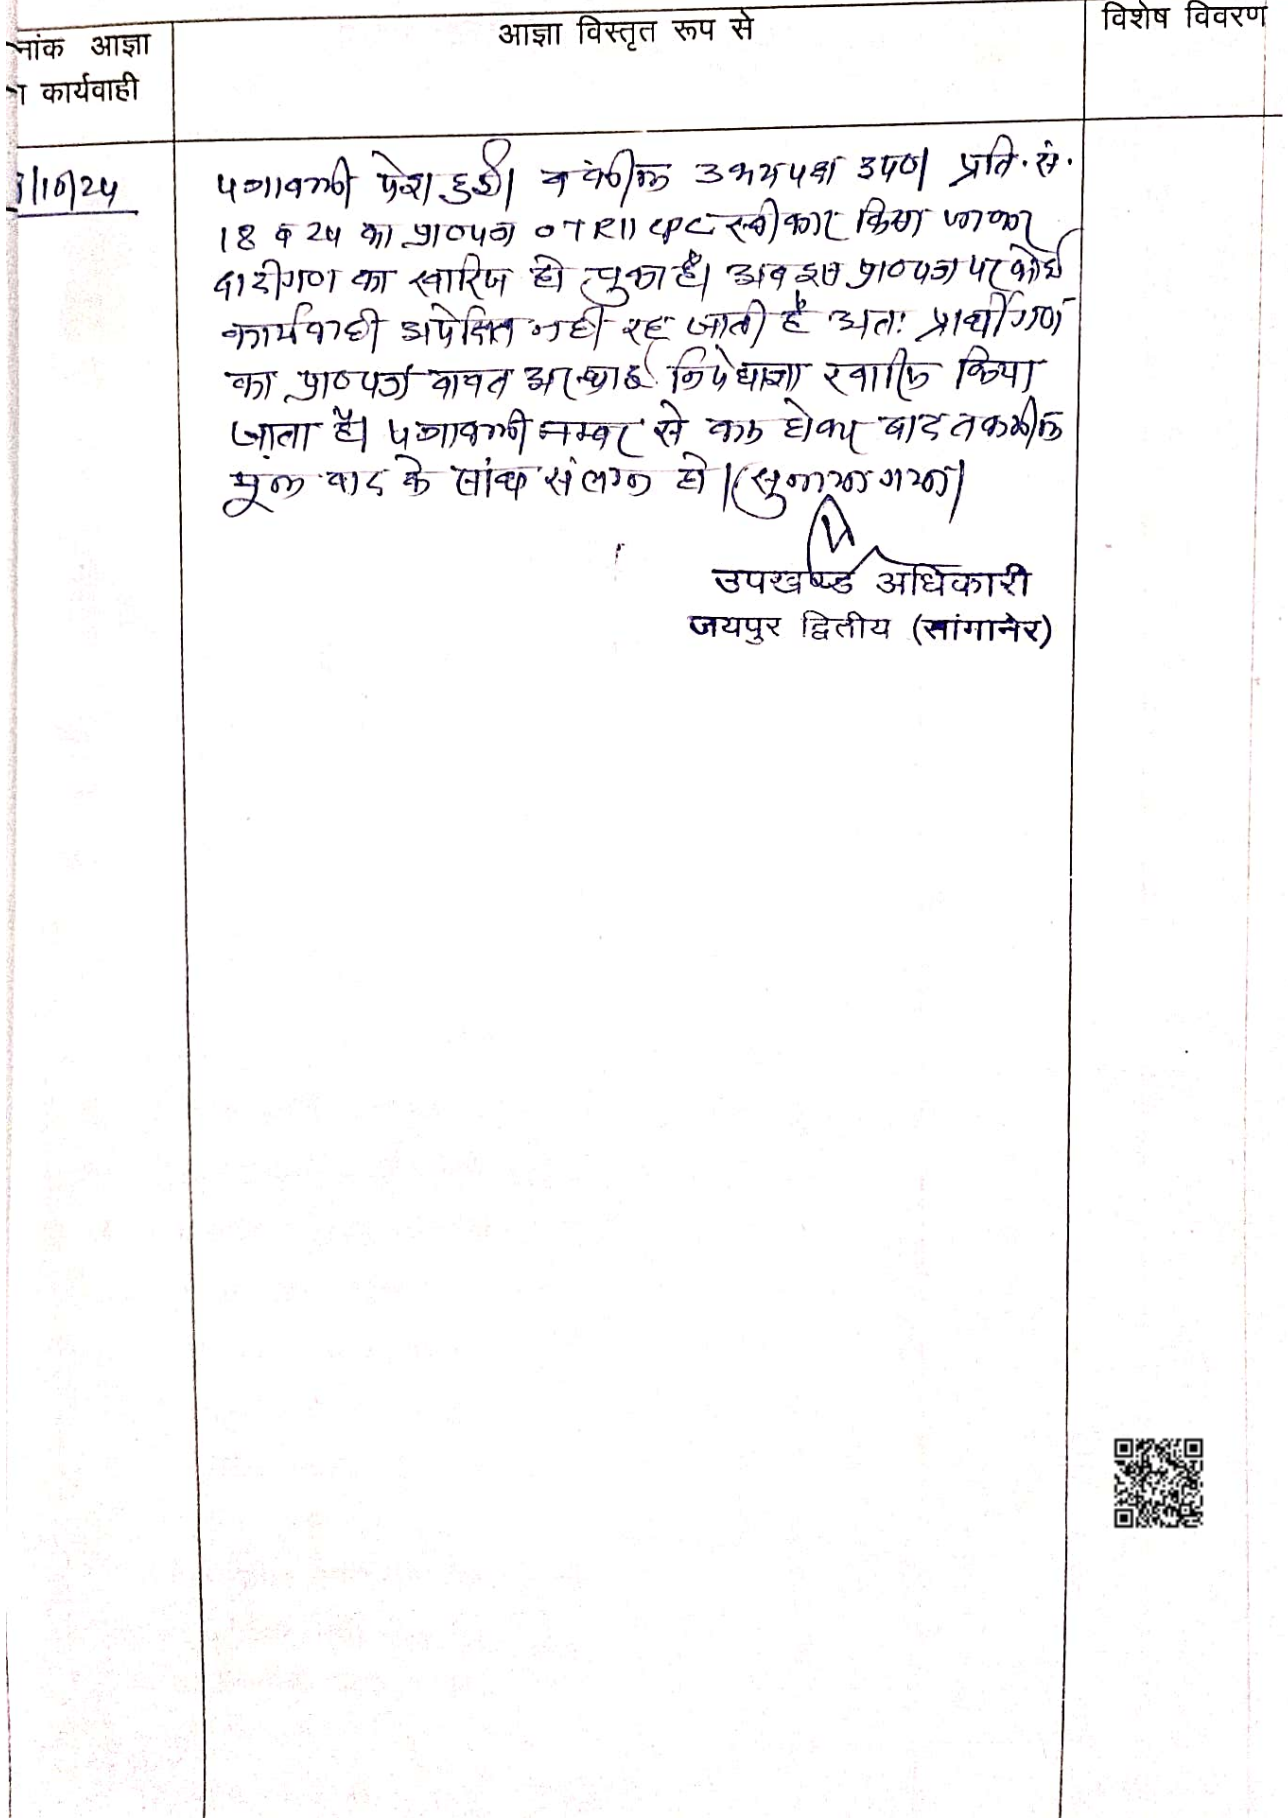 नांक आज्ञा
कार्यवाही
आज्ञा विस्तृत रूप से
विशेष विवरण
/10/24
पत्रावली पेश हुई। वकील उभयपक्ष उप०। प्रति. सं.
18 व 24 का प्रा०पत्र O7R11 CPC स्वीकार किया जाकर
का खारिज हो चुका है। अब इस प्रा०पत्र पर कोई
कार्यवाही अपेक्षित नहीं रह जाती है अतः प्रार्थीगण
का प्रा०पत्र बाबत अस्थाई निषेधाज्ञा खारिज किया
जाता है। पत्रावली नम्बर से कम होकर बाद तकमील
मूल वाद के साथ संलग्न हो। (सुनाया गया)
उपखण्ड अधिकारी
जयपुर द्वितीय (सांगानेर)